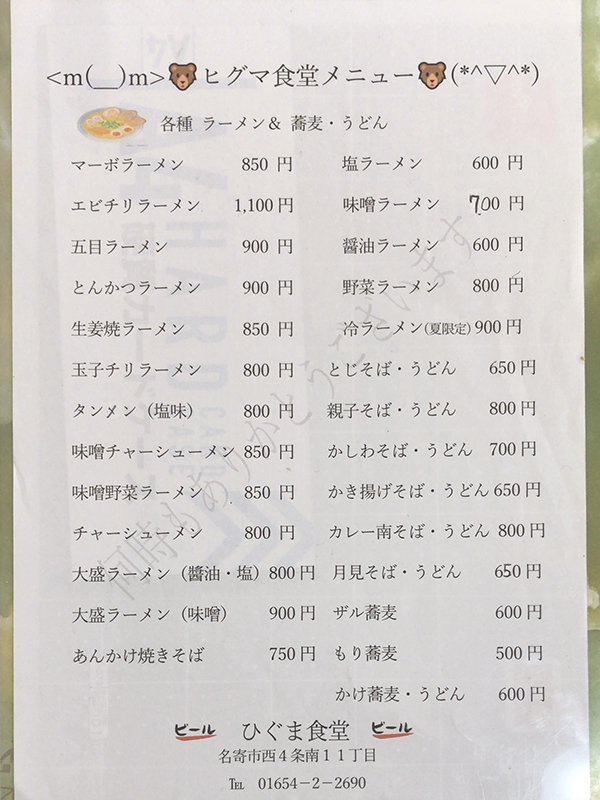 <m(__)m>🐻ヒグマ食堂メニュー🐻(*^▽^*)
各種 ラーメン& 蕎麦・うどん
マーボラーメン 850 円
エビチリラーメン 1,100 円
五目ラーメン 900 円
とんかつラーメン 900 円
生姜焼ラーメン 850 円
玉子チリラーメン 800 円
タンメン（塩味） 800 円
味噌チャーシューメン 850 円
味噌野菜ラーメン 850 円
チャーシューメン 800 円
大盛ラーメン（醬油・塩）800 円
大盛ラーメン（味噌） 900 円
あんかけ焼きそば 750 円
塩ラーメン 600 円
味噌ラーメン 700 円
醬油ラーメン 600 円
野菜ラーメン 800 円
冷ラーメン(夏限定) 900 円
とじそば・うどん 650 円
親子そば・うどん 800 円
かしわそば・うどん 700 円
かき揚げそば・うどん 650 円
カレー南そば・うどん 800 円
月見そば・うどん 650 円
ザル蕎麦 600 円
もり蕎麦 500 円
かけ蕎麦・うどん 600 円
何時もありがとうございます
ビール ひぐま食堂 ビール
名寄市西４条南１１丁目
℡ 01654－2－2690